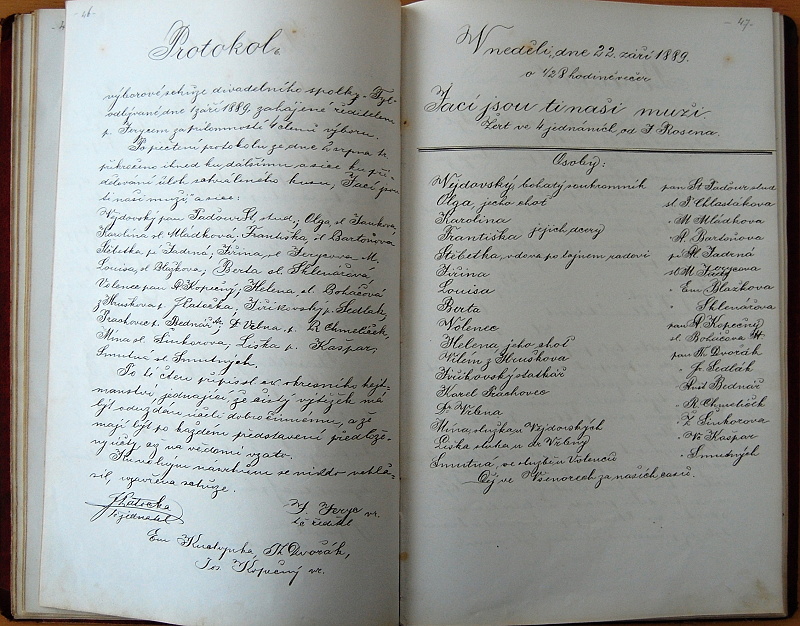 - 46. -
Protokol
výborové schůze divadelního spolku „Tyl"
odbývané dne 1 září 1889, zahájené ředitelem
p. Jerycem za přítomnosti 4 členů výboru.
Po přečtení protokolu ze dne 2 srpna t.r.
přikročeno ihned ku dalšímu a sice ku při-
dělování úloh schváleného kusu, Jací jsou
ti naši muži, a sice:
Vejdovský pan Padour St. stud.; Olga, sl.
Karolina sl. Mládková, Františka, sl. Bartoňova
Štěbetka, pí Jadrná; Jiřina, sl. Jerycova M.
Louisa, sl. Blažkova; Berta sl. Sklenářova
Volenec pan A. Kopečný; Helena, sl. Boháčova
z Hruškova p. Hlatečka, Tvrikovský p. Sedlák,
Prachovec p. Bednář, Dr Vrbna p. R Chmelíček,
Mina sl. Šinkorova; Liška p. Kašpar;
Smutná sl. Smutných.
Po té čten přípis sl. c.k. okresního hejt-
manství, jednající, že čistý výtěžek má
býti odevzdán účeli dobročinnému, a že
mají být po každém představení předlože-
ny účty, až na vědomí vzato.
K návrhům se nikdo nehlá-
sil, uzavřena schůze.
t.č. jednatel
F. Jeryc vr.
t.č. ředitel
Em Kustynka, Th Dvořák,
Jos. Kopečný vr.
- 47. -
V neděli, dne 22. září 1889.
o 1/2 8 hodině večer
Jací jsou ti naši muži.
Žert ve 4 jednáních, od J Rosena.
Osoby:
Vejdovský, bohatý soukromník pan St Padour stud
Olga, jeho choť sl J Chlastákova
Karolina " M Mládkova
Františka jejich dcery " A. Bartoňova
Štěbetka, vdova po tajném radovi pí St Jadrná
Jiřina sl M Jerycova
Louisa " Em Blažkova
Berta " Sklenářova
Volenec pan A Kopečný
Helena jeho choť sl. Boháčova
Vilém z Hruškova pan Th Dvořák
Tvrikovský statkář " Jr Sedlák
Karel Prachovec " Bednář
Dr Vrbna " R Chmelíček
Mina služka u Vejdovských " Ž Šinkorova
Liška sluha u dr Vrbny " Kašpar
Smutná, ve službě u Volenců " Smutných
Děj ve Všenorech za našich časů.